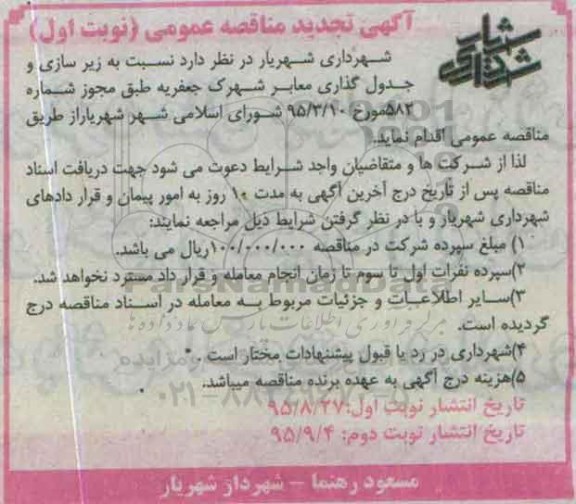 آگهی تجدید مناقصه عمومی (نوبت اول)
شهرداری شهریار
شهرداری شهریار در نظر دارد نسبت به زیر سازی و
جدول گذاری معابر شهرک جعفریه طبق مجوز شماره
۵۸۲مورخ ۹۵/۳/۱۰ شورای اسلامی شهر شهریاراز طریق
مناقصه عمومی اقدام نماید.
لذا از شرکت ها و متقاضیان واجد شرایط دعوت می شود جهت دریافت اسناد
مناقصه پس از تاریخ درج آخرین آگهی به مدت ۱۰ روز به امور پیمان و قرار دادهای
شهرداری شهریار و با در نظر گرفتن شرایط ذیل مراجعه نمایند:
۱) مبلغ سپرده شرکت در مناقصه ۱۰۰/۰۰۰/۰۰۰ریال می باشد.
۲)سپرده نفرات اول تا سوم تا زمان انجام معامله و قرار داد مسترد نخواهد شد.
ParsNamadData
۳)سایر اطلاعات و جزئیات مربوط به معامله در اسناد مناقصه درج
گردیده است.
۴)شهرداری در رد یا قبول پیشنهادات مختار است .
۵)هزینه درج آگهی به عهده برنده مناقصه میباشد.
تاریخ انتشار نوبت اول:۹۵/۸/۲۷
تاریخ انتشار نوبت دوم: ۹۵/۹/۴
مسعود رهنما - شهردار شهریار